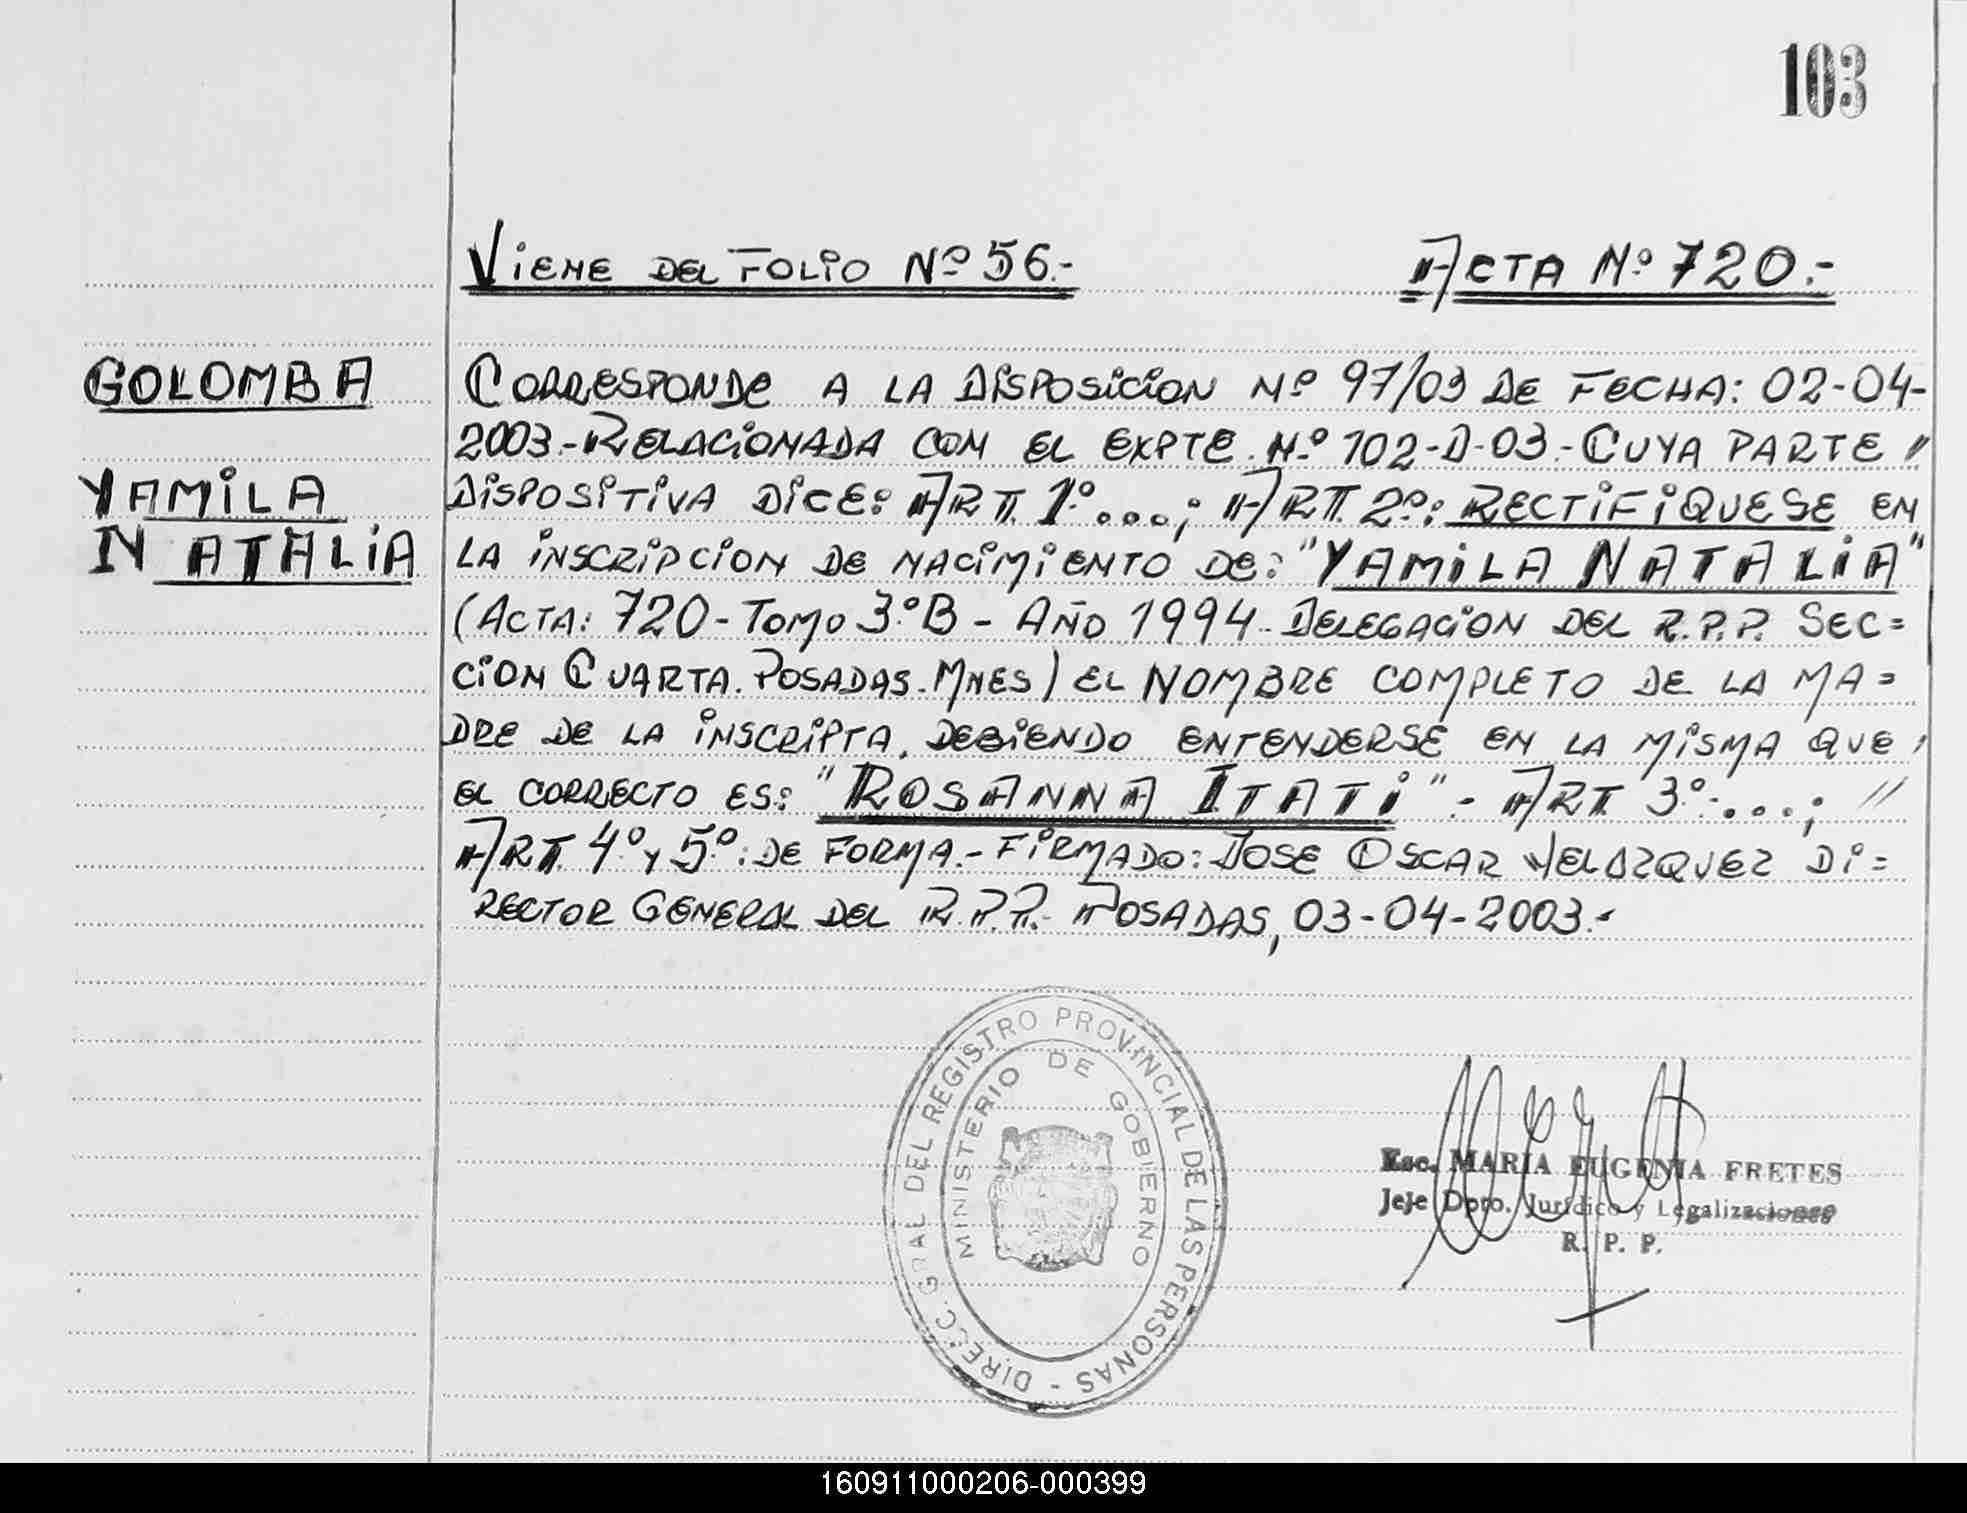 103
VIENE DEL FOLIO Nº 56.- ACTA Nº 720.-
GOLOMBA CORRESPONDE A LA DISPOSICION Nº 97/03 DE FECHA: 02-04-
2003.- RELACIONADA CON EL EXPTE. Nº 102-D-03.- CUYA PARTE "
YAMILA DISPOSITIVA DICE: ART. 1º....; ART. 2º: RECTIFIQUESE EN
NATALIA LA INSCRIPCION DE NACIMIENTO DE: "YAMILA NATALIA"
(ACTA: 720 - TOMO 3ºB - AÑO 1994. DELEGACION DEL R.P.P. SEC=
CION CUARTA. POSADAS. MNES) EL NOMBRE COMPLETO DE LA MA=
DRE DE LA INSCRIPTA, DEBIENDO ENTENDERSE EN LA MISMA QUE,
EL CORRECTO ES: "ROSANNA ITATI" - ART. 3º-...; //
ART. 4º Y 5º: DE FORMA.- FIRMADO: JOSE OSCAR VELAZQUEZ DI=
RECTOR GENERAL DEL R.P.P.- POSADAS, 03-04-2003.-
DIRECC. GRAL DEL REGISTRO PROVINCIAL DE LAS PERSONAS -
MINISTERIO DE GOBIERNO
Esc. MARIA EUGENIA FRETES
Jefe Dpto. Jurídico y Legalizaciones
R. P. P.
160911000206-000399